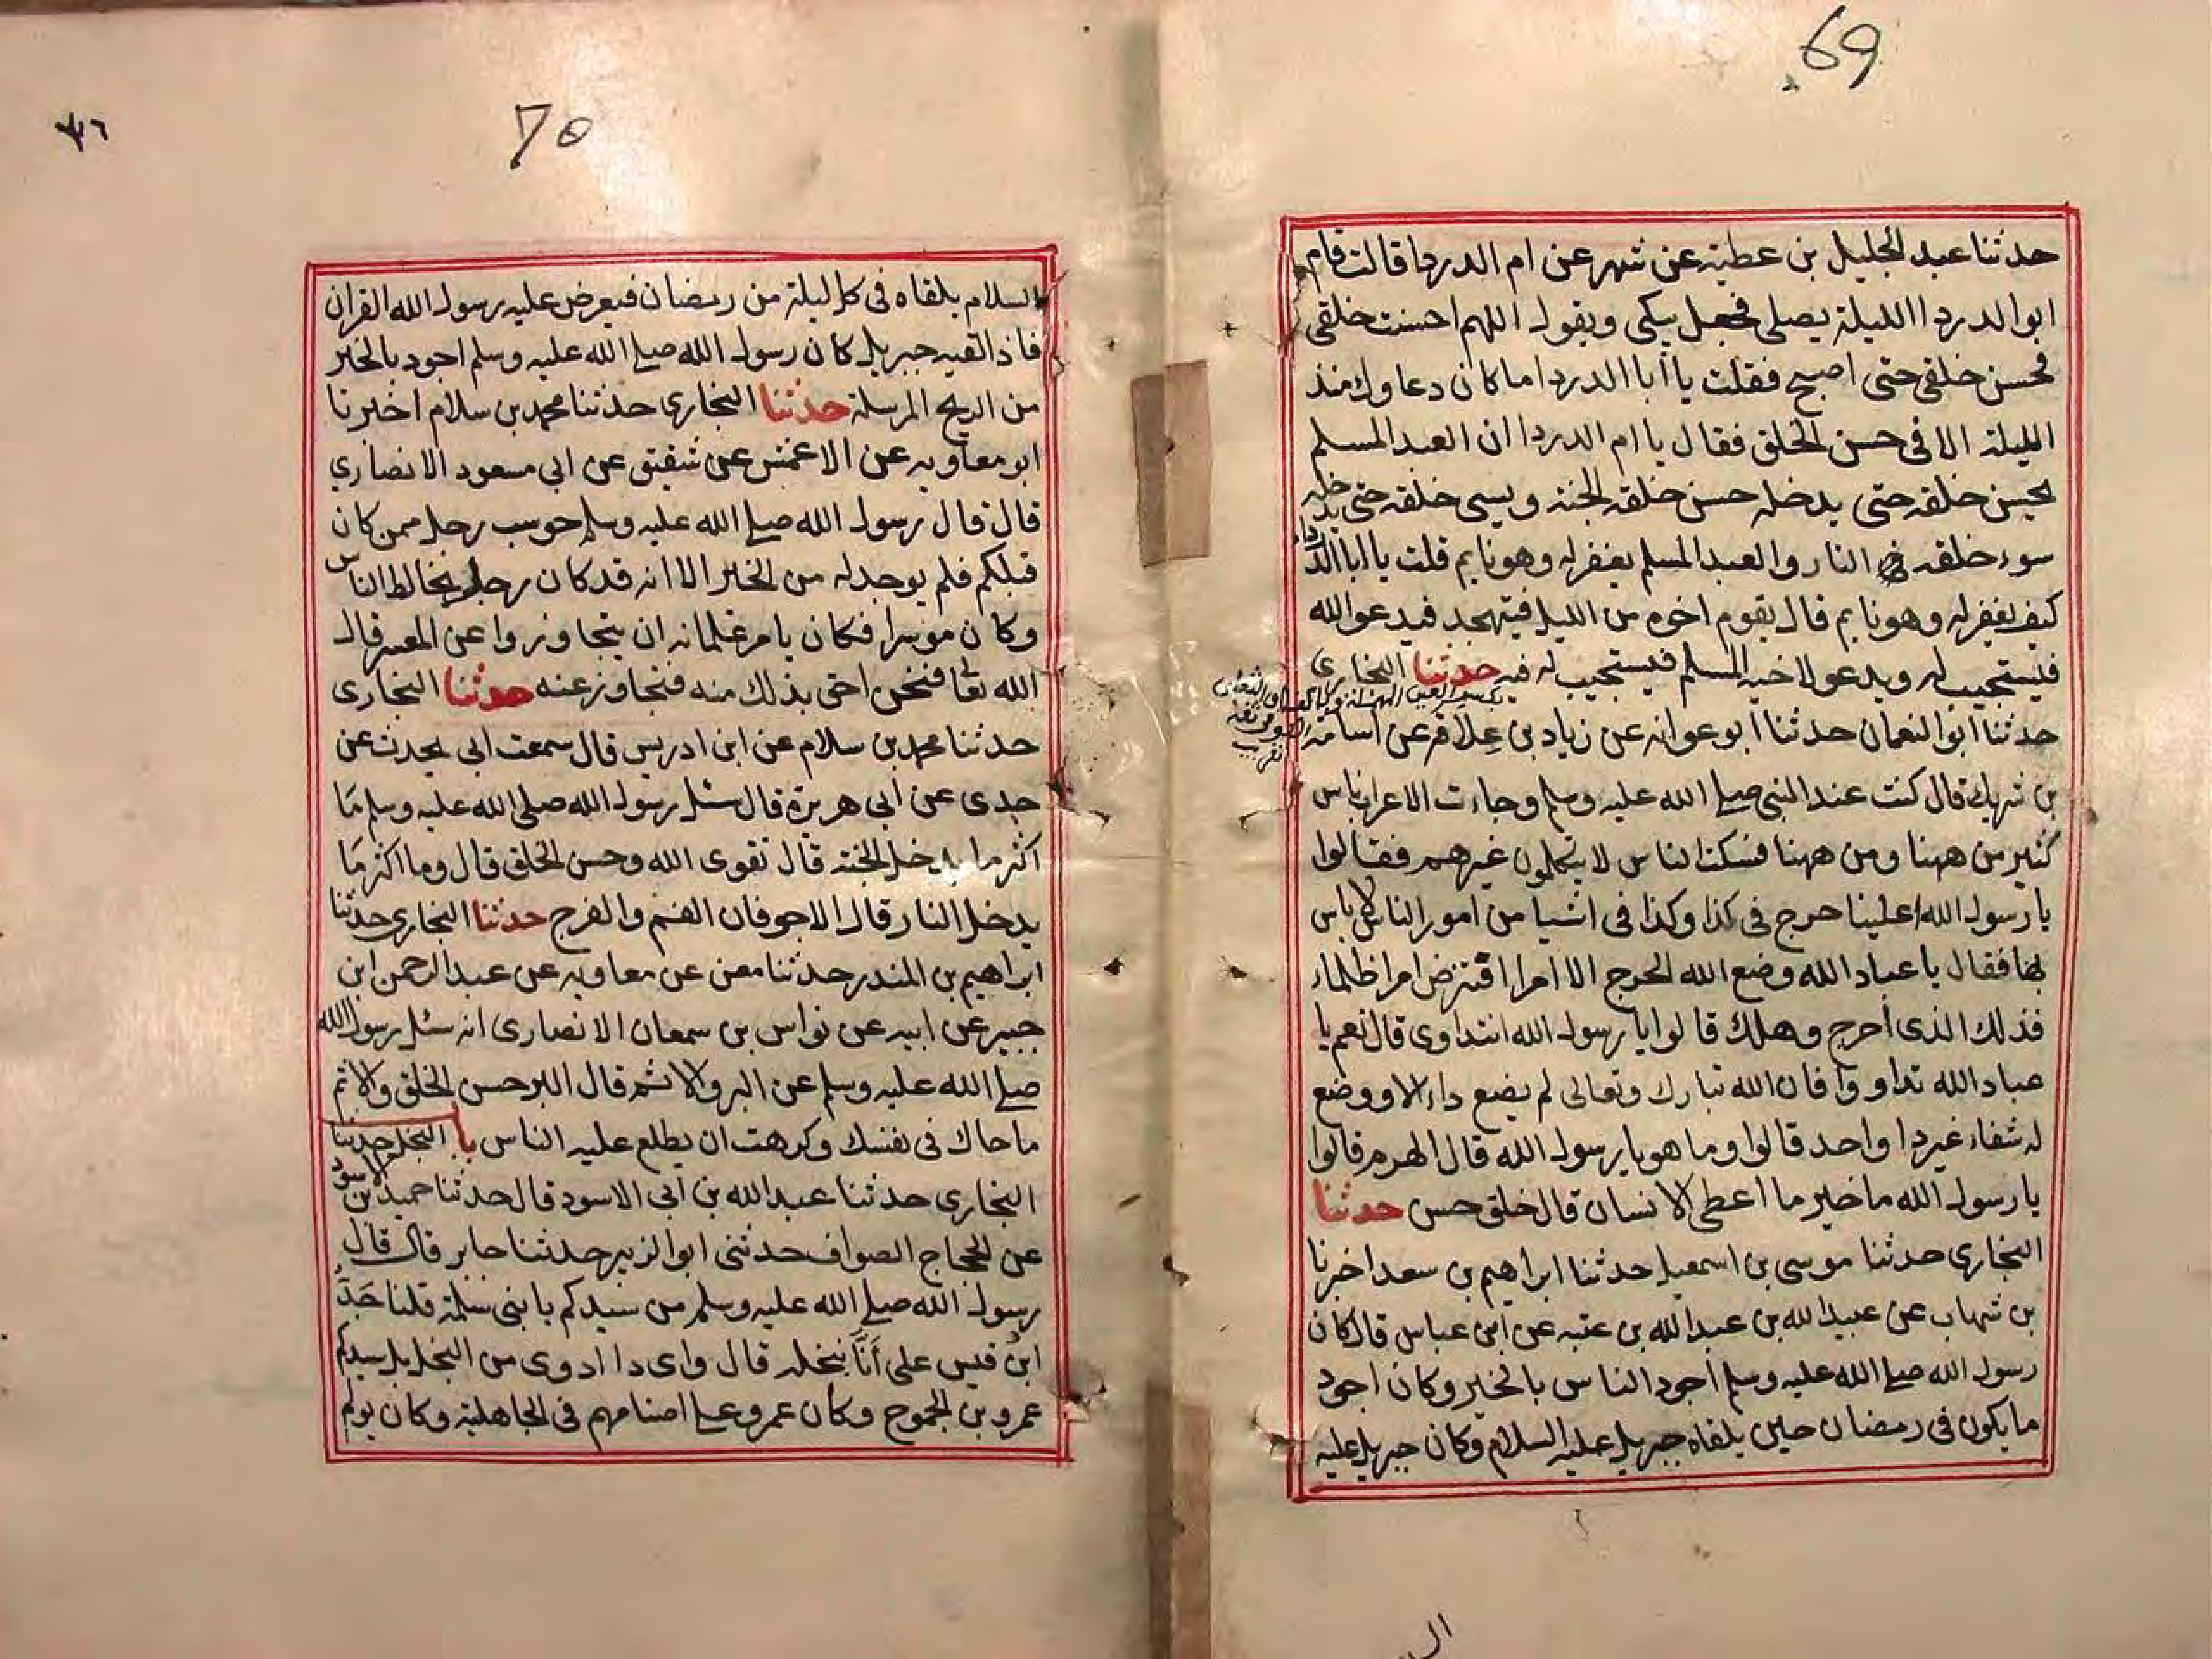 69
حدثنا عبد الجليل بن عطية عن شهر عن ام الدردا قالت قام
ابو الدردا الليلة يصلي فجعل يبكي ويقول اللهم احسنت خلقي
فحسن خلقي حتى اصبح فقلت يا أبا الدردا اما كان دعاوك منذ
الليلة الا في حسن الخلق فقال يا ام الدردا ان العبد المسلم
يحسن خلقه حتى يدخله حسن خلقه الجنة ويسي خلقه حتى يدخله
سوء خلقه النار والعبد المسلم يغفر له وهو نايم قلت يا ابا الدرداء
كيف يغفر له وهو نايم قال يقوم اخوه من الليل فيتهجد فيدعو الله
فيستجيب له ويدعو لاخيه المسلم فيستجيب له فيه حدثنا البخاري
حدثنا ابو النعمان حدثنا ابو عوانه عن زياد بن عِلاقة عن اسامة
بن شريك قال كنت عند النبي صلى الله عليه وسلم وجاءت الاعراب ناس
كثير من ههنا ومن ههنا فسكت الناس لا يتكلمون غيرهم فقالوا
يا رسول الله اعلينا حرج في كذا وكذا في اشيا من امور الناس لا باس
بها فقال يا عباد الله وضع الله الحرج الا امرا اقترض امرا ظلماء
فذلك الذي أحرج وهلك قالوا يا رسول الله انتداوى قال نعم يا
عباد الله تداووا فان الله تبارك وتعالى لم يضع داء الا ووضع
له شفاء غير داء واحد قالوا وما هو يا رسول الله قال الهرم قالوا
يا رسول الله ما خير ما اعطي الانسان قال خلق حسن حدثنا
البخاري حدثنا موسى بن اسمعيل حدثنا ابراهيم بن سعد اخبرنا
بن شهاب عن عبيد الله بن عبد الله بن عتبه عن ابن عباس قال كان
رسول الله صلى الله عليه وسلم أجود الناس بالخير وكان اجود
ما يكون في رمضان حين يلقاه جبريل عليه السلام وكان جبريل عليه
70
٣٦
السلام يلقاه في كل ليلة من رمضان فيعرض عليه رسول الله القران
فاذا لقيه جبريل كان رسول الله صلى الله عليه وسلم اجود بالخير
من الريح المرسلة حدثنا البخاري حدثنا محمد بن سلام اخبرنا
ابو معاويه عن الاعمش عن شقيق عن ابي مسعود الانصاري
قال قال رسول الله صلى الله عليه وسلم حوسب رجل ممن كان
قبلكم فلم يوجد له من الخير الا انه قد كان رجلا يخالط الناس
وكان موسرا فكان يامر غلمانه ان يتجاوزوا عن المعسر قال
الله تعا فنحن احق بذلك منه فتجاوز عنه حدثنا البخاري
حدثنا محمد بن سلام عن ابن ادريس قال سمعت ابي يحدث عن
جدي عن أبي هريرة قال سئل رسول الله صلى الله عليه وسلم مَا
اكثر ما يدخل الجنة قال تقوى الله وحسن الخلق قال وما اكثر مَا
يدخل النار قال الاجوفان الفم والفرج حدثنا البخاري حدثنا
ابراهيم بن المنذر حدثنا معن عن معاويه عن عبد الرحمن ابن
جبير عن ابيه عن نواس بن سمعان الانصاري انه سئل رسول الله
صلى الله عليه وسلم عن البر والاثم قال البر حسن الخلق والاثم
ما حاك في نفسك وكرهت ان يطلع عليه الناس با البخل حدثنا
البخاري حدثنا عبد الله بن أبي الاسود قال حدثنا حميد بن الاسود
عن الحجاج الصواف حدثني ابو الزبير حدثنا جابر قال قال
رسول الله صلى الله عليه وسلم من سيدكم يا بني سلمة قلنا جَدُّ
ابنُ قيس على أنَّا نبخله قال واى دا ادوى من البخل بل سيدكم
عمرو بن الجموح وكان عمرو على اصنامهم في الجاهلية وكان يولم